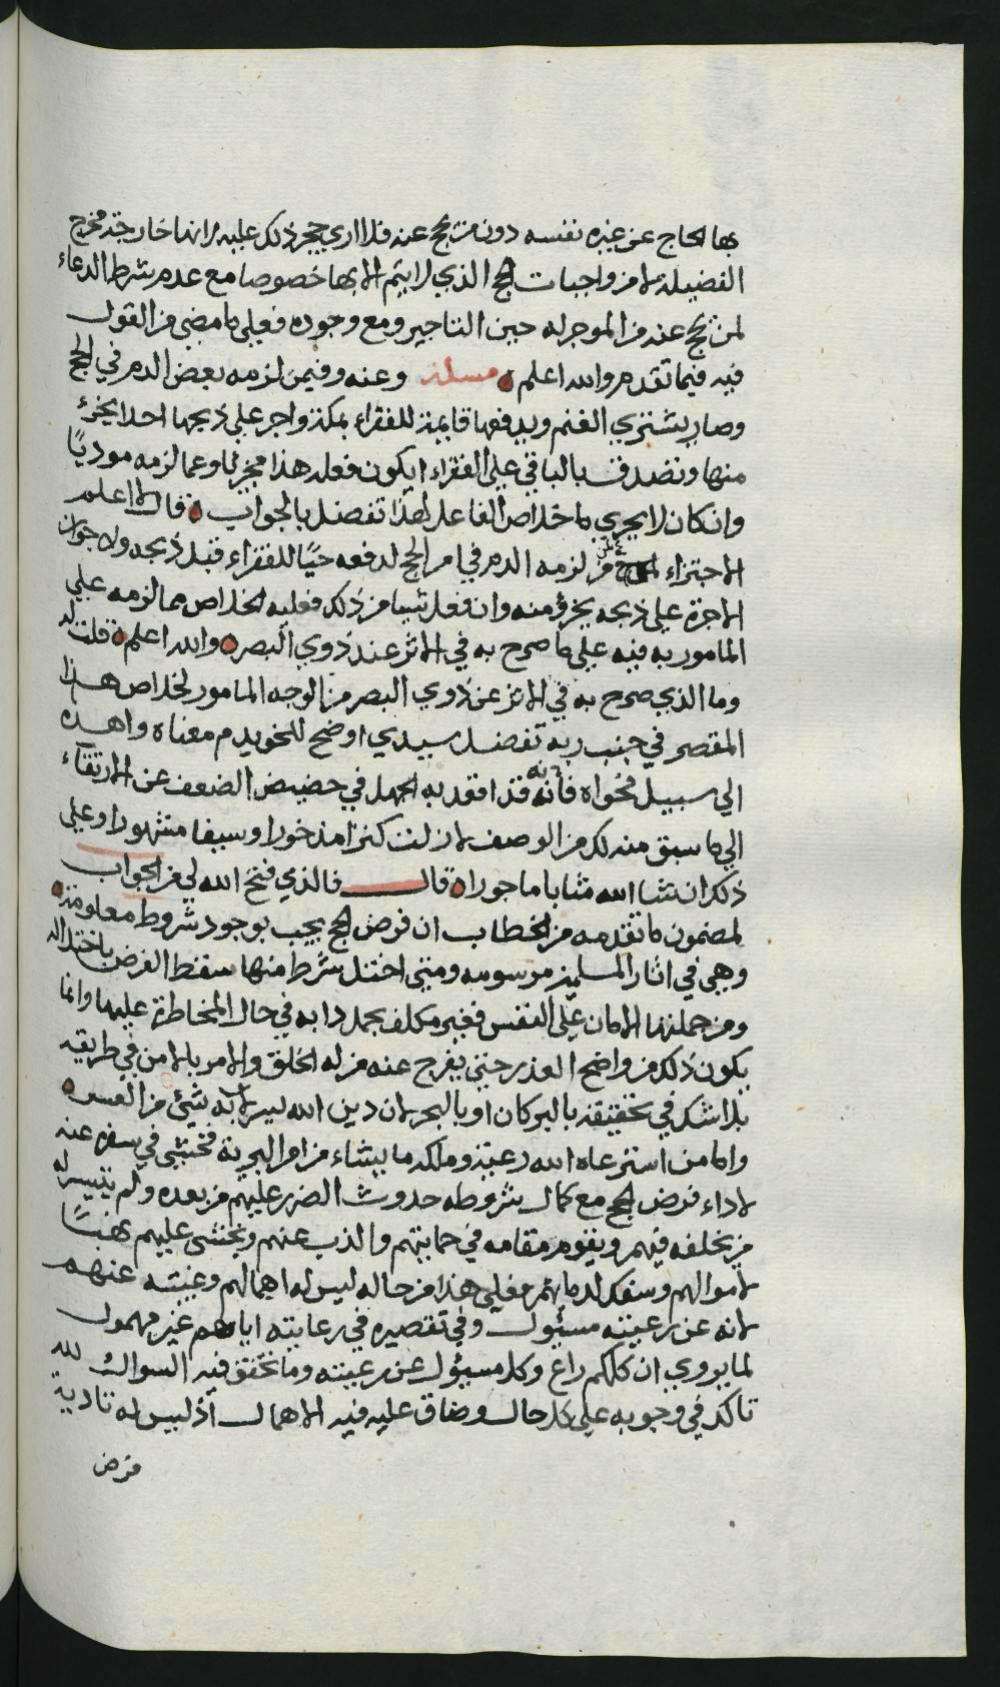 بها الحاج عن غيره نفسه دون من يحج عنه فلا اري حجر ذلك عليه لانها خارجة مخرج
الفضيلة لا من واجبات الحج الذي لا يتم الا بها خصوصا مع عدم شرط الدعاء
لمن يحج عنه من الموجر له حين التاجير ومع وجوده فعلي ما مضي من القول
فيه فيما تقدم والله اعلم مسئلة وعنه وفيمن لزمه بعض الدم في الحج
وصار يشتري الغنم ويدفعها قايمة للفقراء بمكة واجر علي ذبحها احدا بجزء
منها وتصدق بالباقي علي الفقراء ايكون فعله هذا مجزيا وعما لزمه موديًا
وان كان لا يجزي ما خلاص الفاعل لهذا تفضل بالجواب قال لا اعلم
الاجتزاء لمن لزمه الدم في امر الحج لدفعه حيًا للفقراء قبل ذبحه ولا جواز
الاجرة علي ذبحه بجزؤ منه وان فعل شيا من ذلك فعليه الخلاص مما لزمه علي
المامور به فيه علي ما صرح به في الاثر عند ذوي البصر والله اعلم قلت له
وما الذي صرح به في الاثر عن ذوي البصر من الوجه المامور لخلاص هذا
المقصر في جنب ربه تفضل سيدي اوضح للخويدم معناه واهده
الي سبيل فحواه فأنه قد اقعد به الجهل في حضيض الضعف عن الارتقاء
الي ما سبق منه لك من الوصف لا زلت كنزا مذخورا وسيفا مشهورا وعلي
ذلك ان شا الله مثابا ماجورا قال فالذي فتح الله لي من الجواب
لمضمون ما تقدمه من الخطاب ان فرض الحج يجب بوجود شروط معلومة
وهي في اثار المسلمين مرسومه ومتي اختل شرط منها سقط الفرض باختلاله
ومن جملتها الامان علي النفس فغير مكلف بحمل دابه في حال المخاطرة عليها وانما
يكون ذلك من واضح العذر حتي يفرج عنه من له الخلق والامر بالامن في طريقه
بلا شك في تحقيقه بالبر كان او بالبحر لان دين الله ليس به شئ من العسر
واما من استرعاه الله رعية وملكه ما يشاء من امر البرية فخشي في سفره عنه
لاداء فرض الحج مع كمال شروطه حدوث الضرر عليهم من بعده ولم يتيسر له
من يخلفه فيهم ويقوم مقامه في حمايتهم والذب عنهم ويخشي عليهم نهبًا
لاموالهم وسفكا لدمائهم فعلي هذا من حاله ليس له اهمالهم وغيبته عنهم
لانه عن رعيته مسئول وفي تقصيره في رعايته اياهم غير مهمول
لما يروي ان كلكم راع وكل مسئول عن رعيته وما تحقق فيه السوال لله
تاكد في وجوبه علي كل حال وضاق عليه فيه الاهمال اذ ليس له تادية
فرض